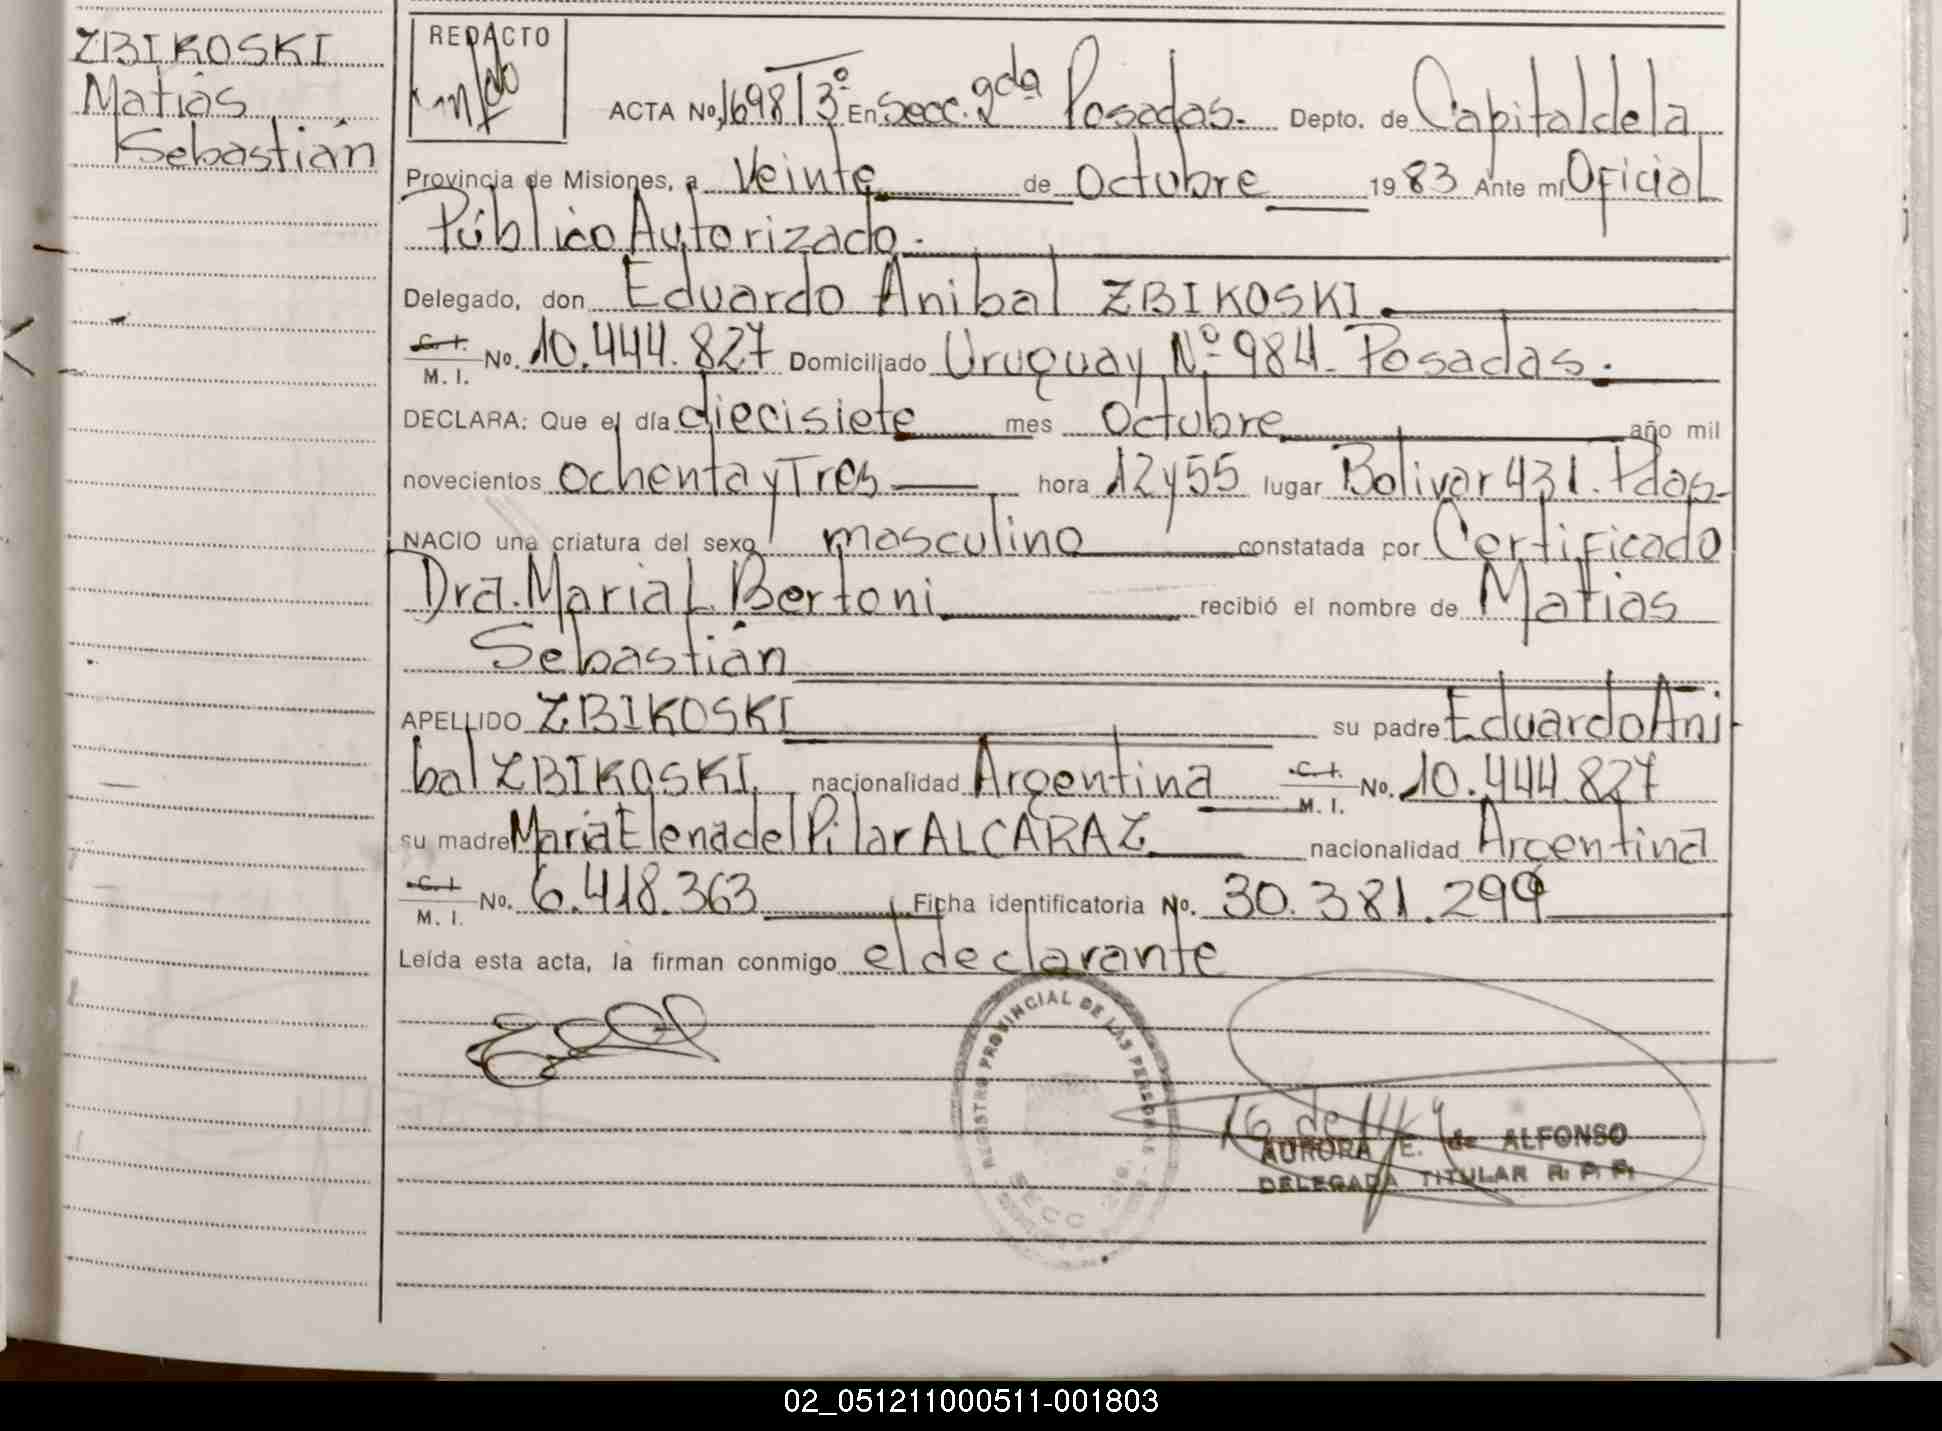 ZBIKOSKI
Matías
Sebastián
REDACTO
ACTA No. 1698 T 3º En Secc. 2da Posadas.- Depto. de Capital de la
Provincia de Misiones, a Veinte de Octubre 1983 Ante mí Oficial
Público Autorizado.-
Delegado, don Eduardo Anibal ZBIKOSKI.
C. I. M. I. No. 10.444.827 Domiciliado Uruguay Nº 984- Posadas.
DECLARA: Que el día diecisiete mes Octubre año mil
novecientos ochenta y Tres hora 12 y 55 lugar Bolivar 431. Pdas-
NACIO una criatura del sexo masculino constatada por Certificado
Dra. Maria L. Bertoni recibió el nombre de Matías
Sebastián
APELLIDO ZBIKOSKI su padre Eduardo Ani-
bal ZBIKOSKI. nacionalidad Argentina C. I. M. I. No. 10.444.827
su madre María Elena del Pilar ALCARAZ nacionalidad Argentina
C. I. M. I. No. 6.418.363 Ficha identificatoria No. 30.381.299
Leída esta acta, la firman conmigo el declarante
REGISTRO PROVINCIAL DE LAS PERSONAS
SECC
AURORA E. de ALFONSO
DELEGADA TITULAR R. P. P.
02_051211000511-001803